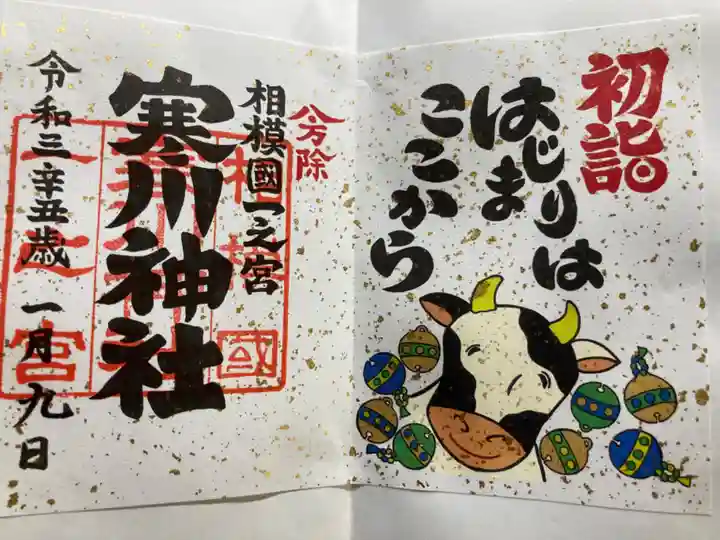 初詣
はじまりは
ここから
八方除
相模國一之宮
寒川神社
令和三辛丑歳 一月九日
相模國
一之宮